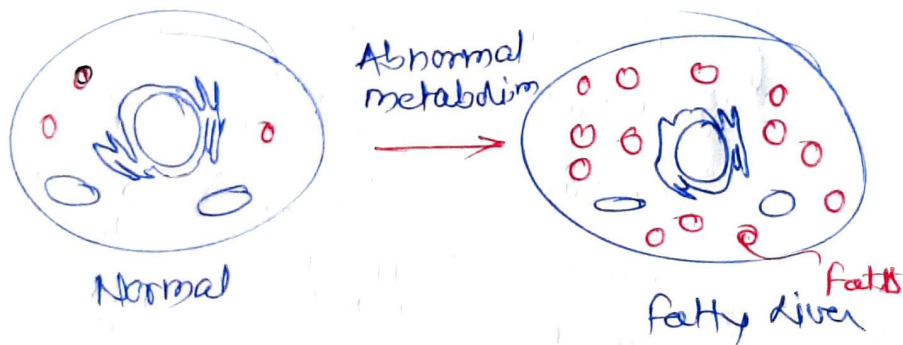 Abnormal
metabolism
Normal
fats
fatty liver